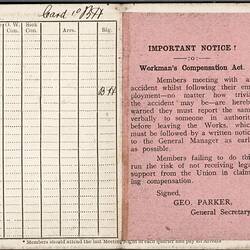 Card 10
O. W. Con.
Sick Con.
Arrs.
Sig.
* Members should attend the last Meeting Night of each quarter and pay all Arrears
IMPORTANT NOTICE!
:o:
Workman's Compensation Act.
Members meeting with a
accident whilst following their em
ployment—no matter how sl
the accident may be—are hereb
warned they must report the sam
verbally to someone in authorit
before leaving the Works, whic
must be followed by a written notic
to the General Manager as earl
as possible.
Members failing to do thi
run the risk of not receiving lega
support from the Union in claim
ing compensation.
Signed,
GEO. PARKER,
General Secretar